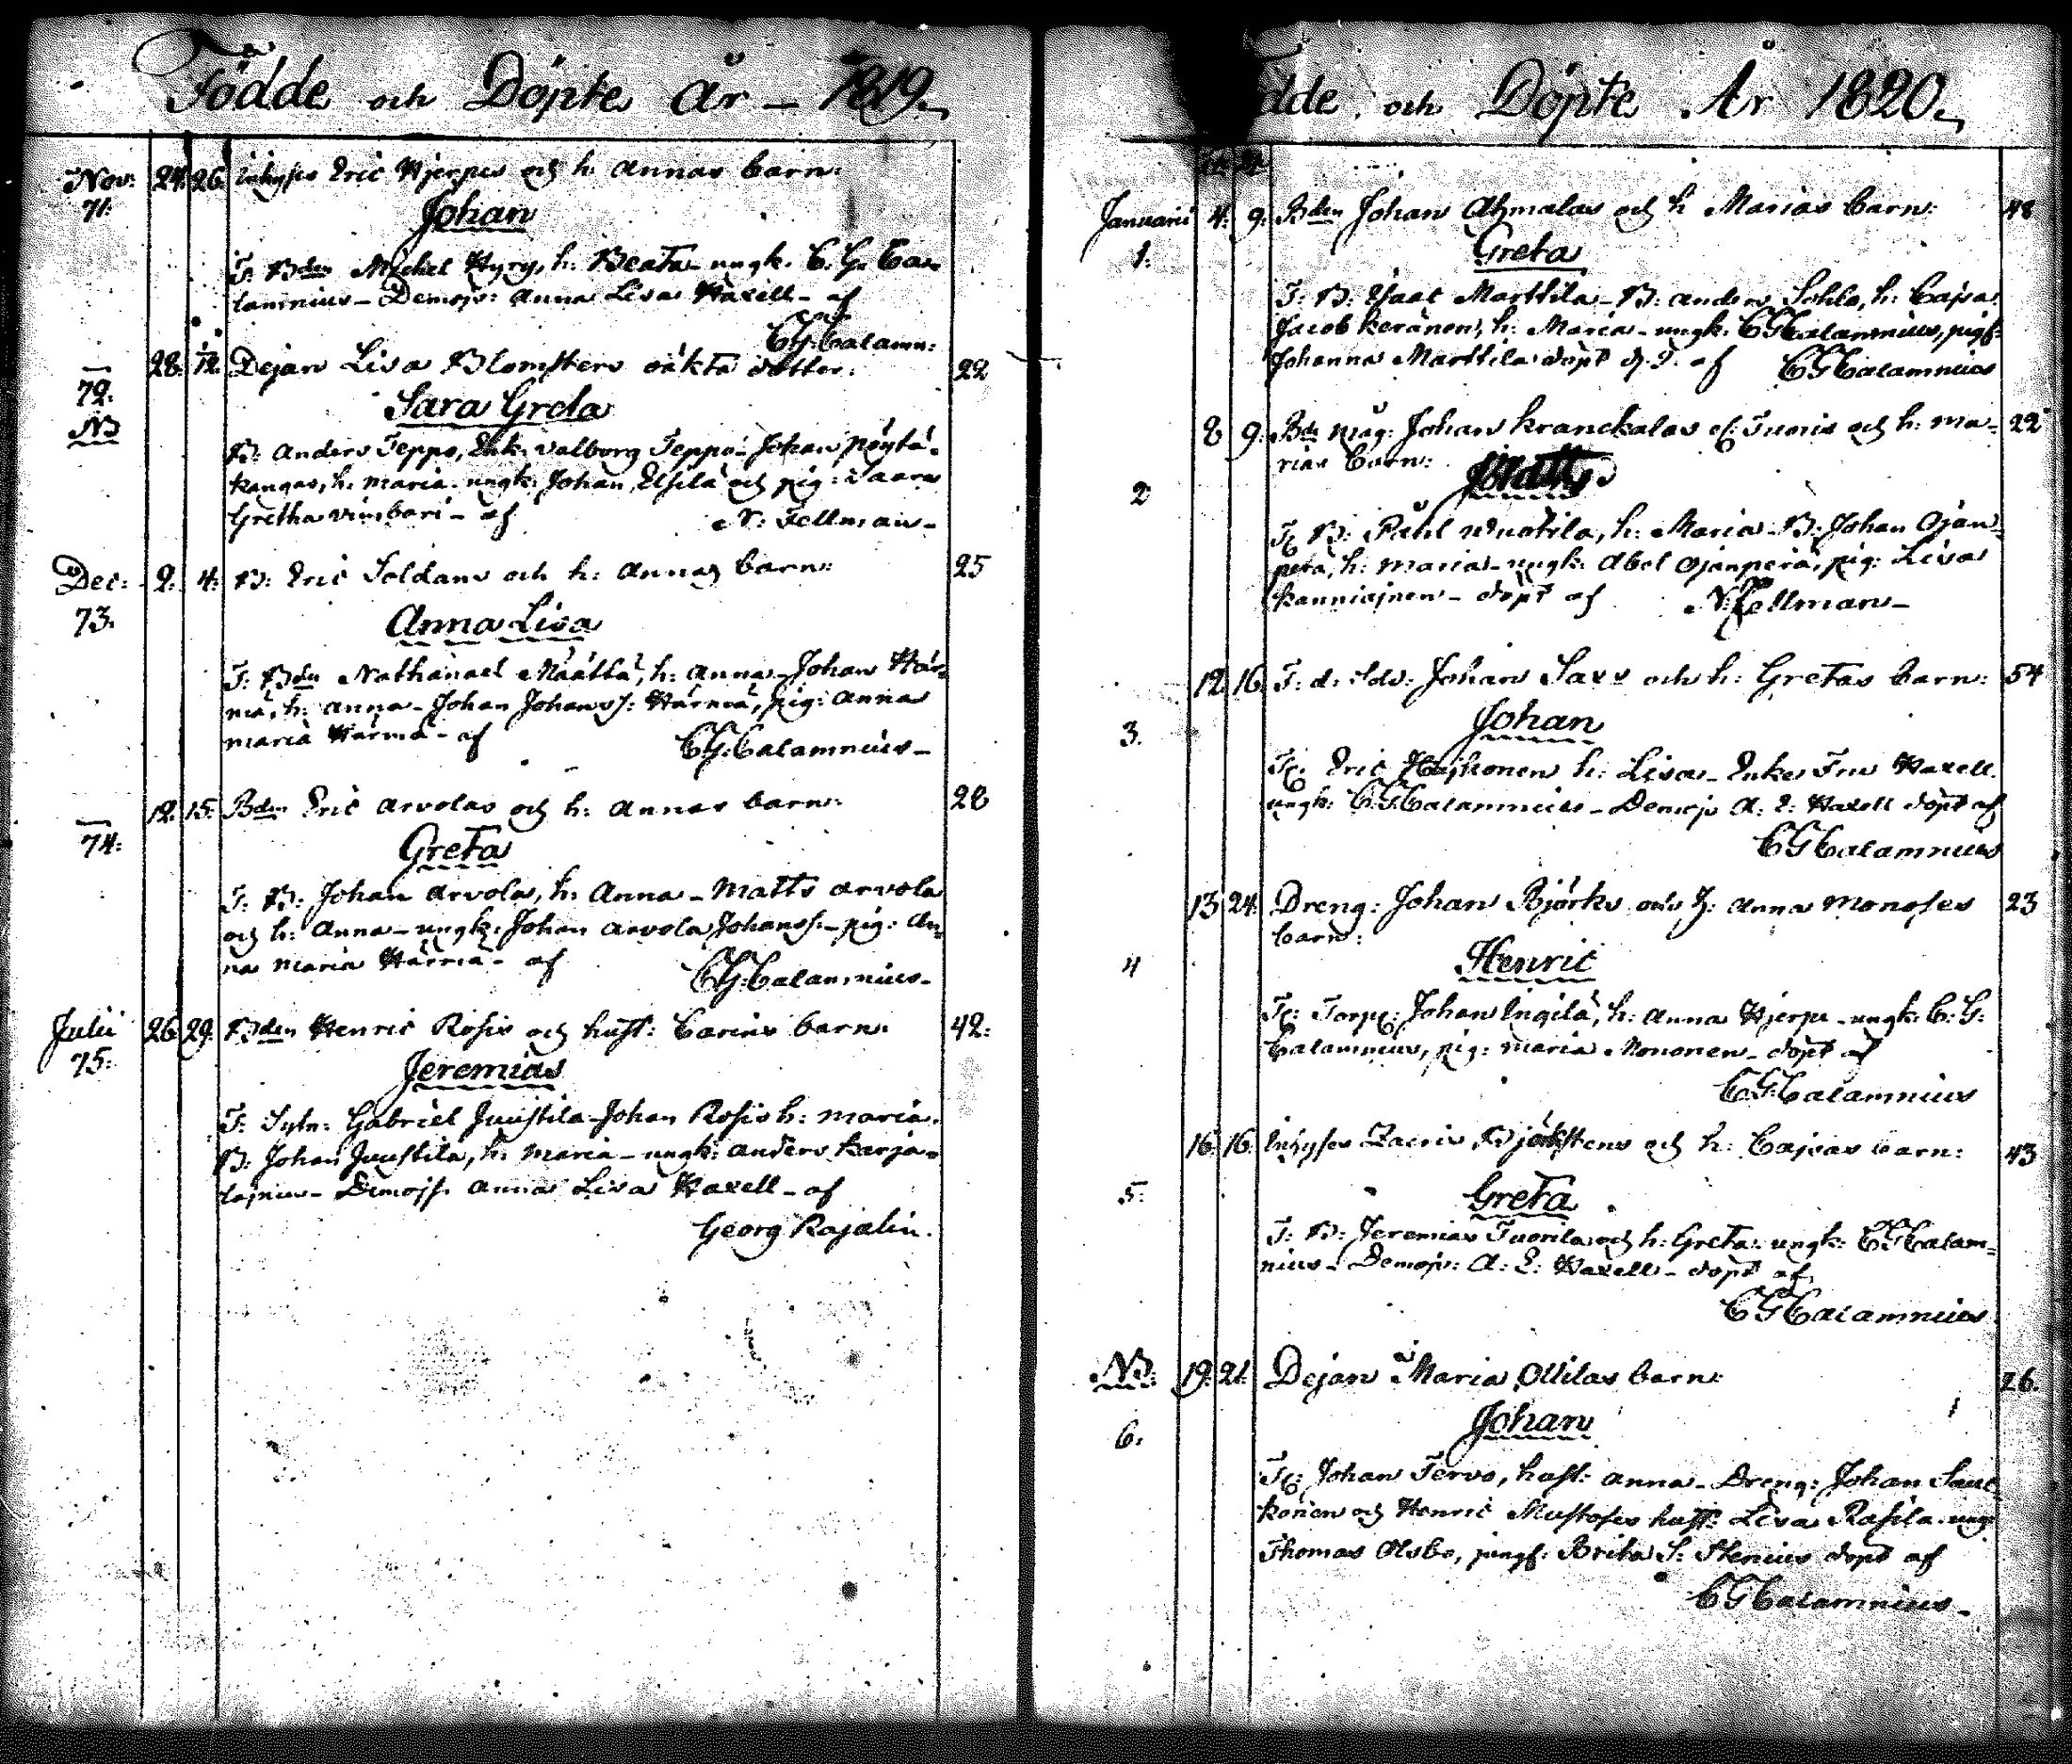 Födde och Döpte år – 1819.
Nov: 24. 26. Inhyses Eric Hjerpes och h. Annas barn:
71.
Johan
F: Bden Michel Hyry, h: Beata – ungk. C. G. Ca-
lamnius – Demois: Anna Lisa Haxell – af
CG: Calamn:
28. 12. Dejan Lisa Blomsters oäkta dotter: 22
72.
NB
Sara Greta
B: Anders Teppo, Enk. Valborg Teppo – Johan Pöytä-
kangas, h. Maria – ungk: Johan Elsilä och pig: Saara
Gretha – af N: Fellman –
Dec: 2. 4. B: Eric Soldans och h: Annas barn: 25
73.
Anna Lisa
F: Bden Nathanael Määttä, h: Anna – Johan Här-
mä, h: Anna – Johan Johanss: Härmä, pig: Anna
Maria Härmä – af CG: Calamnius –
12. 15. Bden Eric Arvolas och h: Annas barn: 28
74.
Greta
F: B: Johan Arvola, h: Anna – Matts Arvola
och h: Anna – ungk: Johan Arvola Johanss: – pig: An-
na Maria Härmä – af CG: Calamnius –
Julii 26 29. Bden Henric Rosis och hust: Carins barn: 42.
75.
Jeremias
F: Sytn: Gabriel Juustila – Johan Rosis h: Maria.
B: Johan Juustila, h: Maria – ungk: Anders Karja-
lajnen – Demoiss: Anna Lisa Haxell – af
Georg Rajalin.
dde och Döpte År 1820.
Januarii 4. 9. Bden Johan Ahmalas och h Marias barn: 48
1.
Greta
F: B: Isaac Marttila – B: Anders Sohlo, h: Cajsa
Jacob Keränen, h: Maria – ungk: CG Calamnius, pigs:
Johanna Marttila döpt af CG Calamnius
8 9. Bde måg: Johan Kranckalas el: Tuoris och h: Ma- 22
rias barn:
2
Matts
F: B: Påhl Wuotila, h: Maria – B: Johan Ojan-
perä, h: Maria – ungk: Abel Ojanperä, pig: Lisa
Kanniajnen – döpt af N: Fellman –
12 16. F: d: Sold: Johan Saxs och h: Gretas barn: 54
3.
Johan
F: Eric h: Lisa – Enke Fru Haxell.
ungk: CG Calamnius – Demois A: L: Haxell döpt af
CG Calamnius
13 24. Dreng: Johan Björks och h: Anna Monoses 23
barn:
4
Henric
F: Torp: Johan Ingilä, h: Anna Hjerpe – ungk: C: G:
Calamnius, pig: Maria Mononen – döpt af
CG Calamnius
16. 16. Inhyses Zacris Björkstens och h: Cajsas barn: 43
5.
Greta
F: B: Jeremias Tuorila och h: Greta: ungk: CG Calam-
nius – Demois: A: L: Haxell – döpt af
CG Calamnius
NB: 19. 21. Dejan Maria Ollilas barn: 26.
6.
Johan
F: Johan Tervo, hust: Anna – Dreng: Johan Sau-
konen och Henric Mustoses hust: Lisa Rasila. ung:
Thomas Olsbo, jungf: Brita S: Stenius döpt af
CG Calamnius –